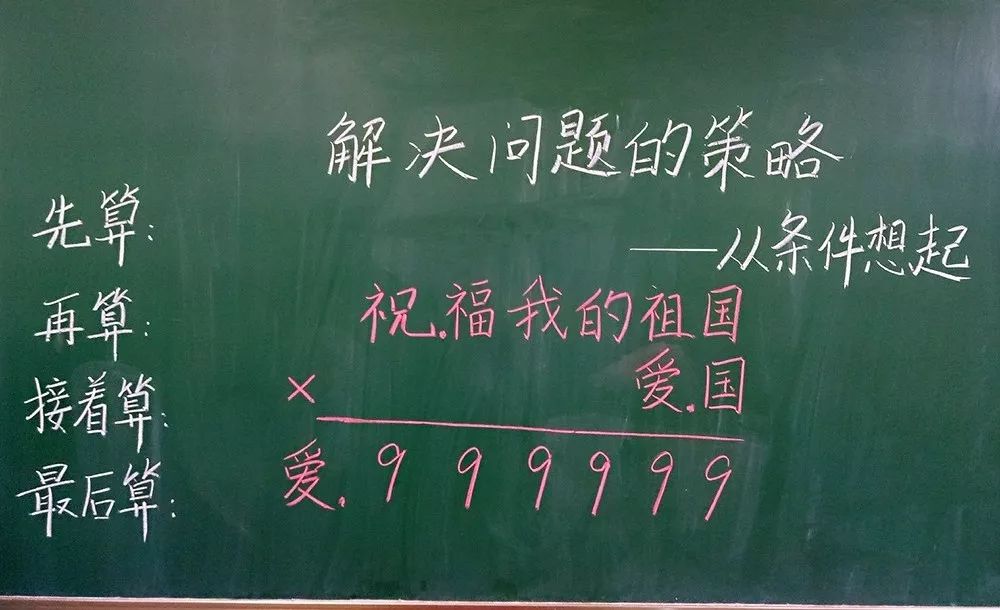 解决问题的策略
——从条件想起
先算:
再算:
接着算:
最后算:
祝.福我的祖国
× 爱.国
爱.999999